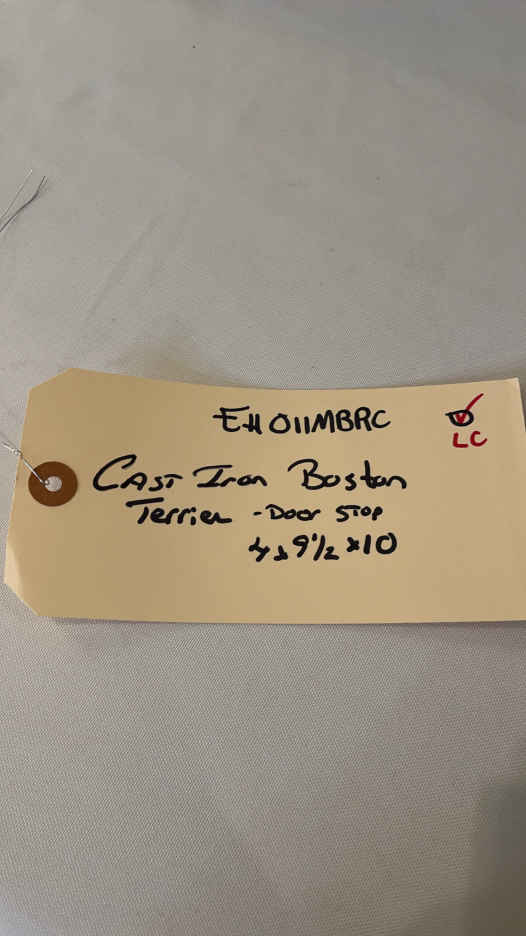 EH011MBRC
LC
Cast Iron Boston
Terrier - Door Stop
4 x 9 1/2 x 10